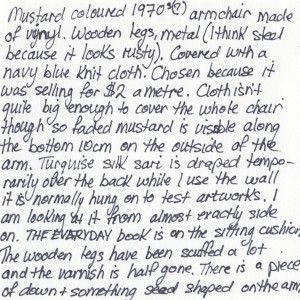 Mustard coloured 1970s(?) armchair made
of vynyl. Wooden legs, metal (I think steel
because it looks rusty). Covered with a
navy blue knit cloth. Chosen because it
was selling for $2 a metre. Cloth isn't
quite big enough to cover the whole chair
though so faded mustard is visible along
the bottom 10cm on the outside of the
arm. Turquise silk sari is draped tempo-
rarily over the back while I use the wall
it is normally hung on to test artworks. I
am looking at it from almost exactly side
on. THE EVERYDAY book is on the sitting cushion.
The wooden legs have been scuffed a lot
and the varnish is half gone. There is a piece
of down + something seed shaped on the arm,